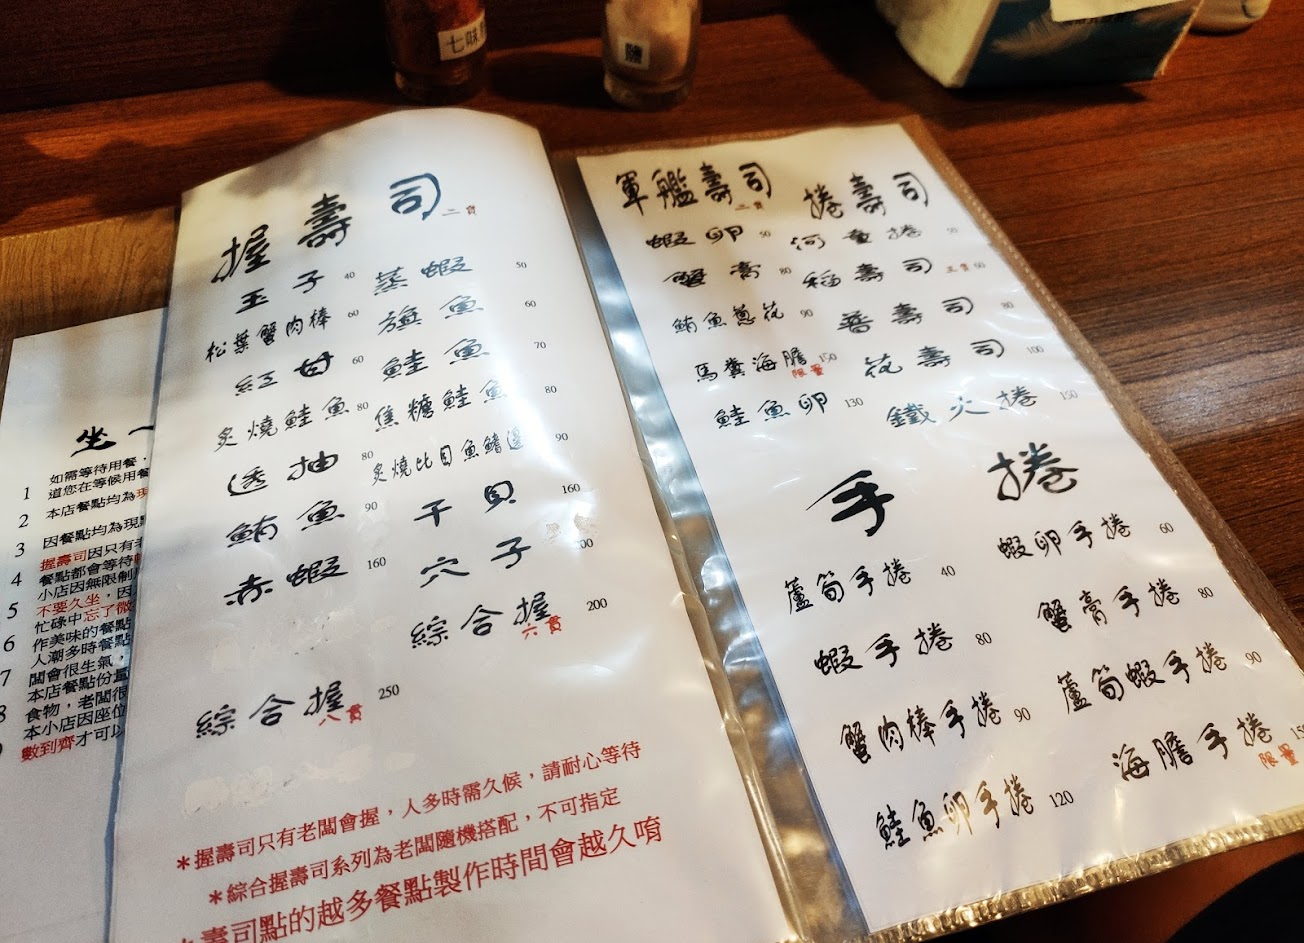 七味
鹽
坐一
1 如需等待用餐，
道您在等候用餐
2 本店餐點均為現
3 因餐點均為現
握壽司因只有老
4 餐點都會等待
小店因無限制
5 不要久坐，因
忙碌中忘了微
6 作美味的餐點
人潮多時餐點
7 闆會很生氣，
本店餐點份量
8 食物，老闆很
本小店因座位
數到齊才可以
握壽司 二貫
玉子 40 蒸蝦 50
松葉蟹肉棒 60 旗魚 60
紅甘 60 鮭魚 70
炙燒鮭魚 80 焦糖鮭魚 80
透抽 80 炙燒比目魚鰭邊 90
鮪魚 90 干貝 160
赤蝦 160 穴子 200
綜合握 六貫 200
綜合握 八貫 250
＊握壽司只有老闆會握，人多時需久候，請耐心等待
＊綜合握壽司系列為老闆隨機搭配，不可指定
壽司點的越多餐點製作時間會越久唷
軍艦壽司 二貫
蝦卵 50
蟹膏 80
鮪魚蔥花 90
馬糞海膽 150 限量
鮭魚卵 130
捲壽司
河童捲 50
稻壽司 三貫 60
普壽司 80
花壽司 100
鐵火捲 150
手捲
蘆筍手捲 40 蝦卵手捲 60
蝦手捲 80 蟹膏手捲 80
蟹肉棒手捲 90 蘆筍蝦手捲 90
鮭魚卵手捲 120 海膽手捲 限量